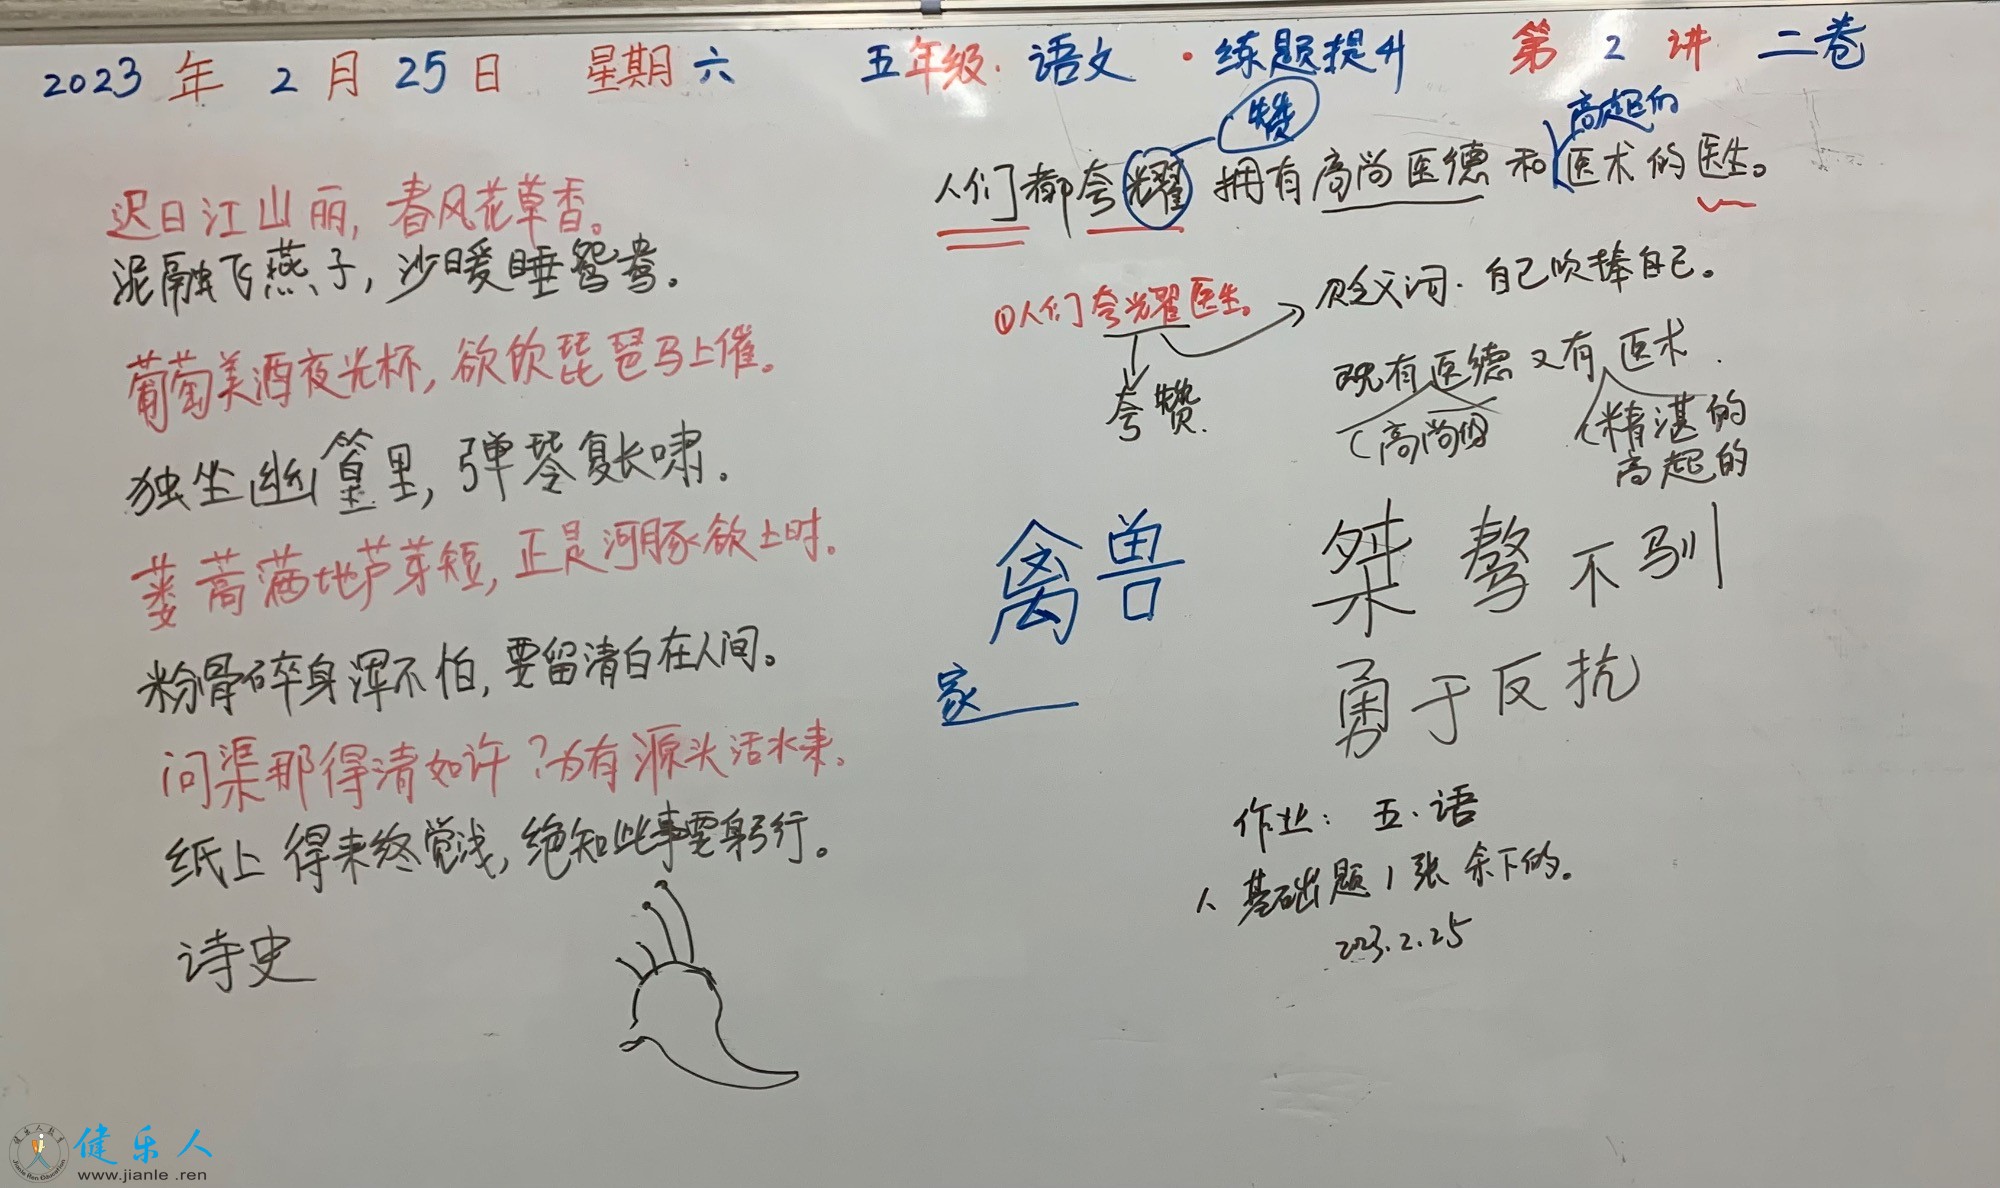 2023年2月25日 星期六 五年级·语文·练题提升 第2讲 二卷
迟日江山丽,春风花草香。
泥融飞燕子,沙暖睡鸳鸯。
葡萄美酒夜光杯,欲饮琵琶马上催。
独坐幽篁里,弹琴复长啸。
蒌蒿满地芦芽短,正是河豚欲上时。
粉骨碎身浑不怕,要留清白在人间。
问渠那得清如许?为有源头活水来。
纸上得来终觉浅,绝知此事要躬行。
诗史
赞
高超的
人们都夸耀拥有高尚医德和医术的医生。
①人们夸耀医生。
贬义词.自己吹捧自己。
夸赞.
既有医德又有医术.
(高尚的
(精湛的
高超的
禽兽
家
桀骜不驯
勇于反抗
作业:五.语
基础题1张 余下的。
2023.2.25
健乐人
www.jianle.ren